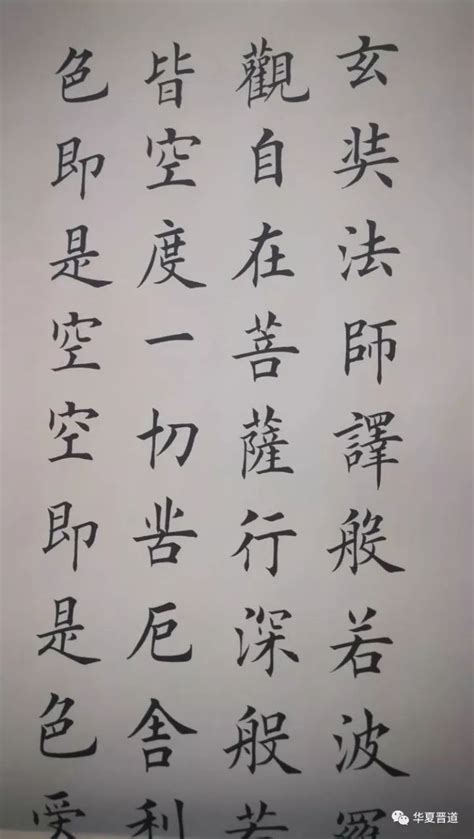 玄奘法師譯般若波羅
觀自在菩薩行深般若
皆空度一切苦厄舍利
色即是空空即是色受
华夏晋道